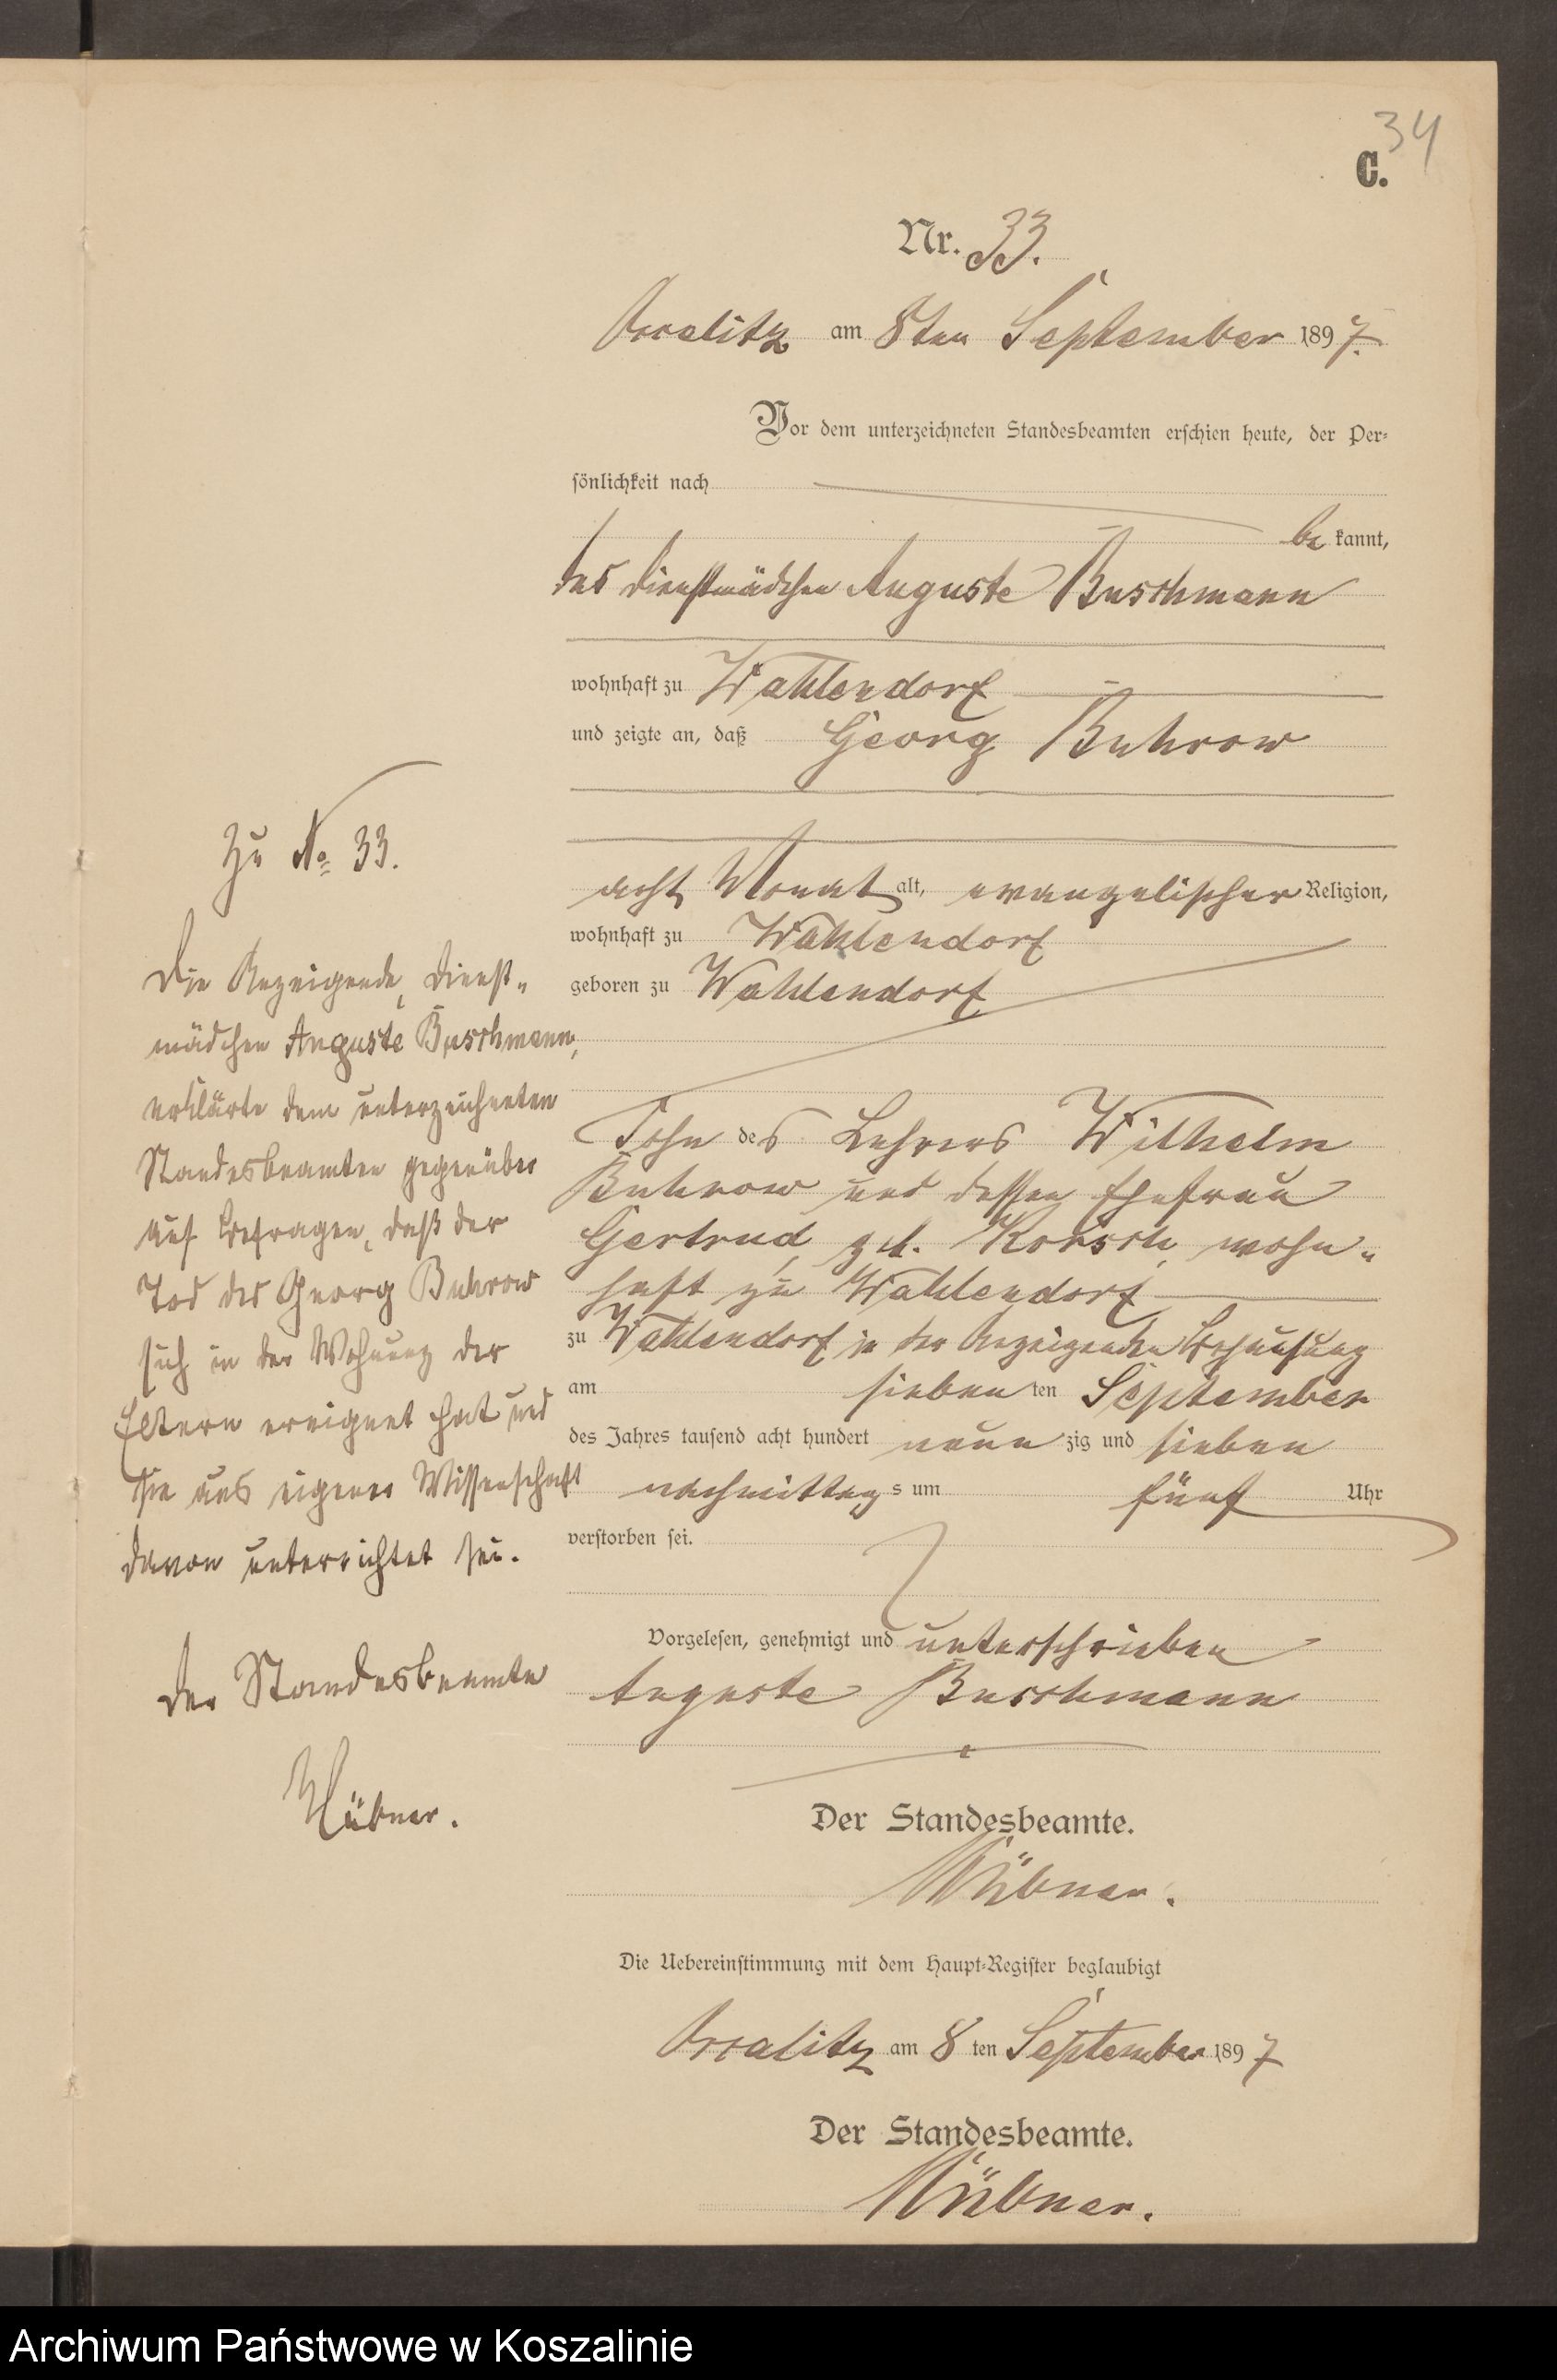 34
C.
Nr. 33.
Vrralitz am 8ten September 1897.
Vor dem unterzeichneten Standesbeamten erschien heute, der Per-
sönlichkeit nach
be kannt,
das Dienstmädchen Auguste Buschmann
wohnhaft zu Wahlendorf
und zeigte an, daß Georg Buhrow
acht Monat alt, evangelischer Religion,
wohnhaft zu Wahlendorf
geboren zu Wahlendorf
Sohn des Lehrers Wilhelm
Buhrow und dessen Ehefrau
Gertrud, geb. wohn-
haft zu Wahlendorf
zu Wahlendorf in der Anzeigenden Behausung
am sieben ten September
des Jahres tausend acht hundert neun zig und sieben
nachmittag s um fünf Uhr
verstorben sei.
Vorgelesen, genehmigt und unterschrieben
Auguste Buschmann
Der Standesbeamte.
Hübner.
Die Uebereinstimmung mit dem Haupt-Register beglaubigt
am 8 ten September 1897
Der Standesbeamte.
Hübner.
Zu No 33.
Die Anzeigende, Dienst-
mädchen Auguste Buschmann,
erklärte dem unterzeichneten
Standesbeamten gegenüber
auf Befragen, daß der
Tod des Georg Buhrow
sich in der Wohnung der
Eltern ereignet hat und
sie aus eigener Wissenschaft
davon unterrichtet sei.
Der Standesbeamte
Hübner.
Archiwum Państwowe w Koszalinie